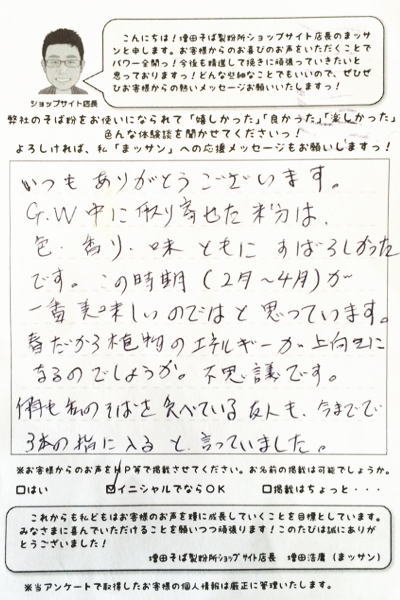 こんにちは！増田そば製粉所ショップサイト店長のマッサ
ンと申します。お客様からのお喜びのお声をいただくことで
パワー全開っ！今後も精進して挽きに頑張っていきたいと
思っておりますっ！どんな些細なことでもいいので、ぜひぜ
ひお客様からの熱いメッセージお願いいたしますっ！
ショップサイト店長
弊社のそば粉をお使いになられて「嬉しかった」「良かった」「楽しかった」
色んな体験談を聞かせてくださいっ！
よろしければ、私「まッサン」への応援メッセージもお願いしますっ！
いつもありがとうございます。
G.W中に取り寄せた粉は、
色・香り・味ともにすばらしかった
です。この時期（2月〜4月）が
一番美味しいのではと思っています。
春だから植物のエネルギーが上向きに
なるのでしょうか。不思議です。
何年も私のそばを食べている友人も、今までで
3本の指に入ると言っていました。
※お客様からのお声をHP等で掲載させてください。お名前の掲載は可能でしょうか。
□はい ☑イニシャルでならOK □掲載はちょっと・・・
これからも私どもはお客様のお声を糧に成長していくことを目標としています。
みなさまに喜んでいただけることを願いつつ頑張ります！このたびは誠にありが
とうございました！
増田そば製粉所ショップサイト店長 増田浩庸（まッサン）
※当アンケートで取得したお客様の個人情報は厳正に管理いたします。